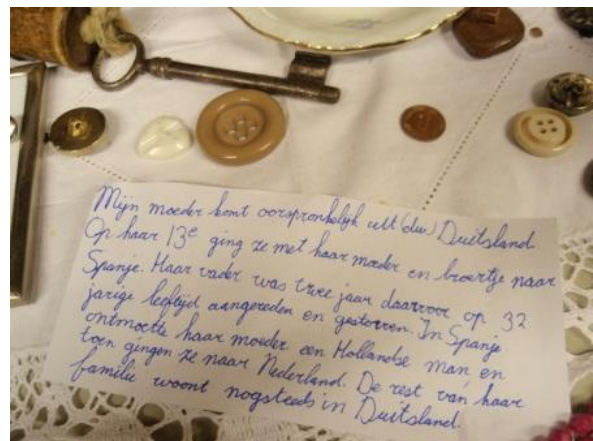 Mijn moeder komt oorspronkelijk uit (du) Duitsland.
Op haar 13e ging ze met haar moeder en broertje naar
Spanje. Haar vader was twee jaar daarvoor op 32
jarige leeftijd aangereden en gestorven. In Spanje
ontmoette haar moeder een Hollandse man en
toen gingen ze naar Nederland. De rest van haar
familie woont nogsteeds in Duitsland.